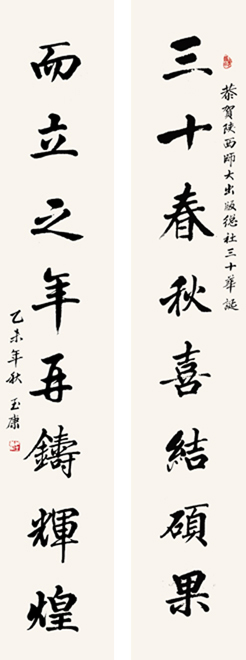 恭賀陕西師大出版總社三十華誕
三十春秋喜結碩果
而立之年再鑄輝煌
乙未年秋 玉康